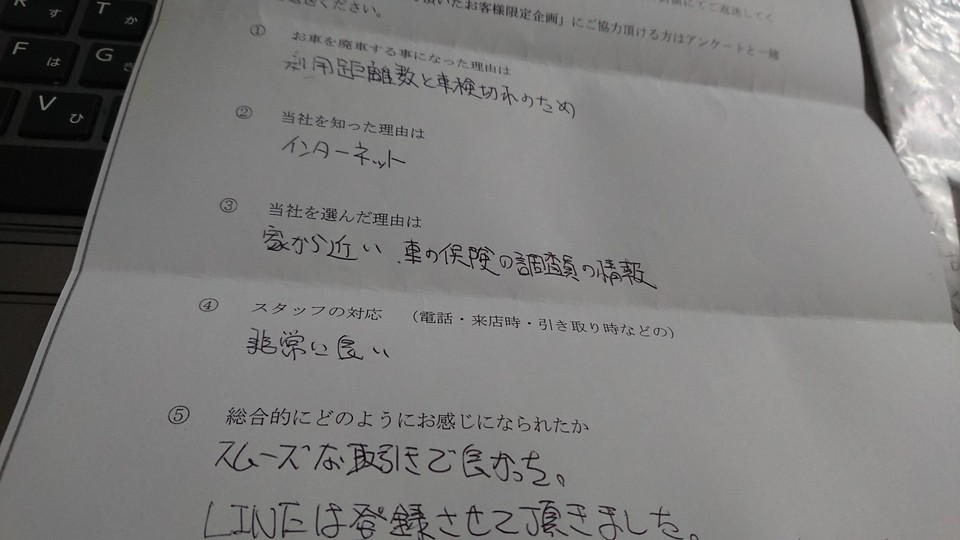 頂いたお客様限定企画」にご協力頂ける方はアンケートと一緒
ください。
① お車を廃車する事になった理由は
利用距離数と車検切れのため
② 当社を知った理由は
インターネット
③ 当社を選んだ理由は
家から近い 車の保険の調査員の情報
④ スタッフの対応 (電話・来店時・引き取り時などの)
非常に良い
⑤ 総合的にどのようにお感じになられたか
スムーズな取引きで良かった。
LINEは登録させて頂きました。
T か
F は
G き
V ひ